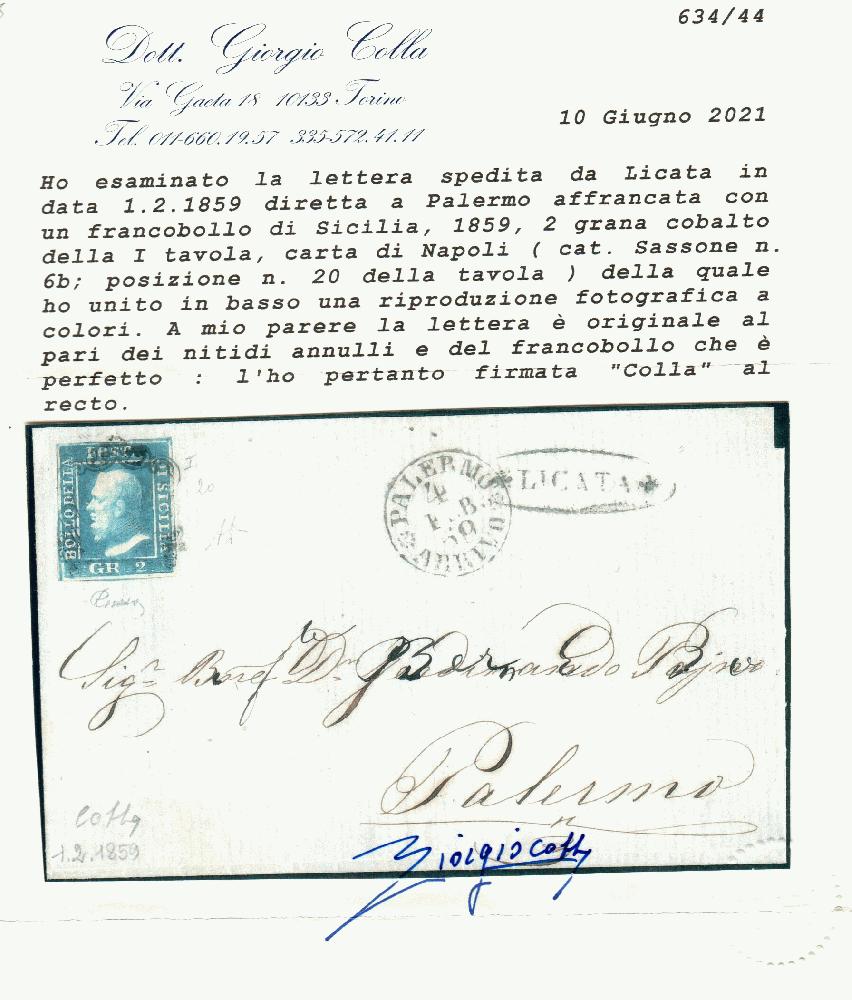 634/44
Dott. Giorgio Colla
Via Gaeta 18 10133 Torino
Tel. 011-660.19.57 335-572.41.11
10 Giugno 2021
Ho esaminato la lettera spedita da Licata in
data 1.2.1859 diretta a Palermo affrancata con
un francobollo di Sicilia, 1859, 2 grana cobalto
della I tavola, carta di Napoli ( cat. Sassone n.
6b; posizione n. 20 della tavola ) della quale
ho unito in basso una riproduzione fotografica a
colori. A mio parere la lettera è originale al
pari dei nitidi annulli e del francobollo che è
perfetto : l'ho pertanto firmata "Colla" al
recto.
BOLLO DELLA POSTA DI SICILIA
GR 2
I
20
PALERMO
4
FEB
59
ARRIVO
LICATA
Sigr
Palermo
Colla
1.2.1859
Giorgio Colla